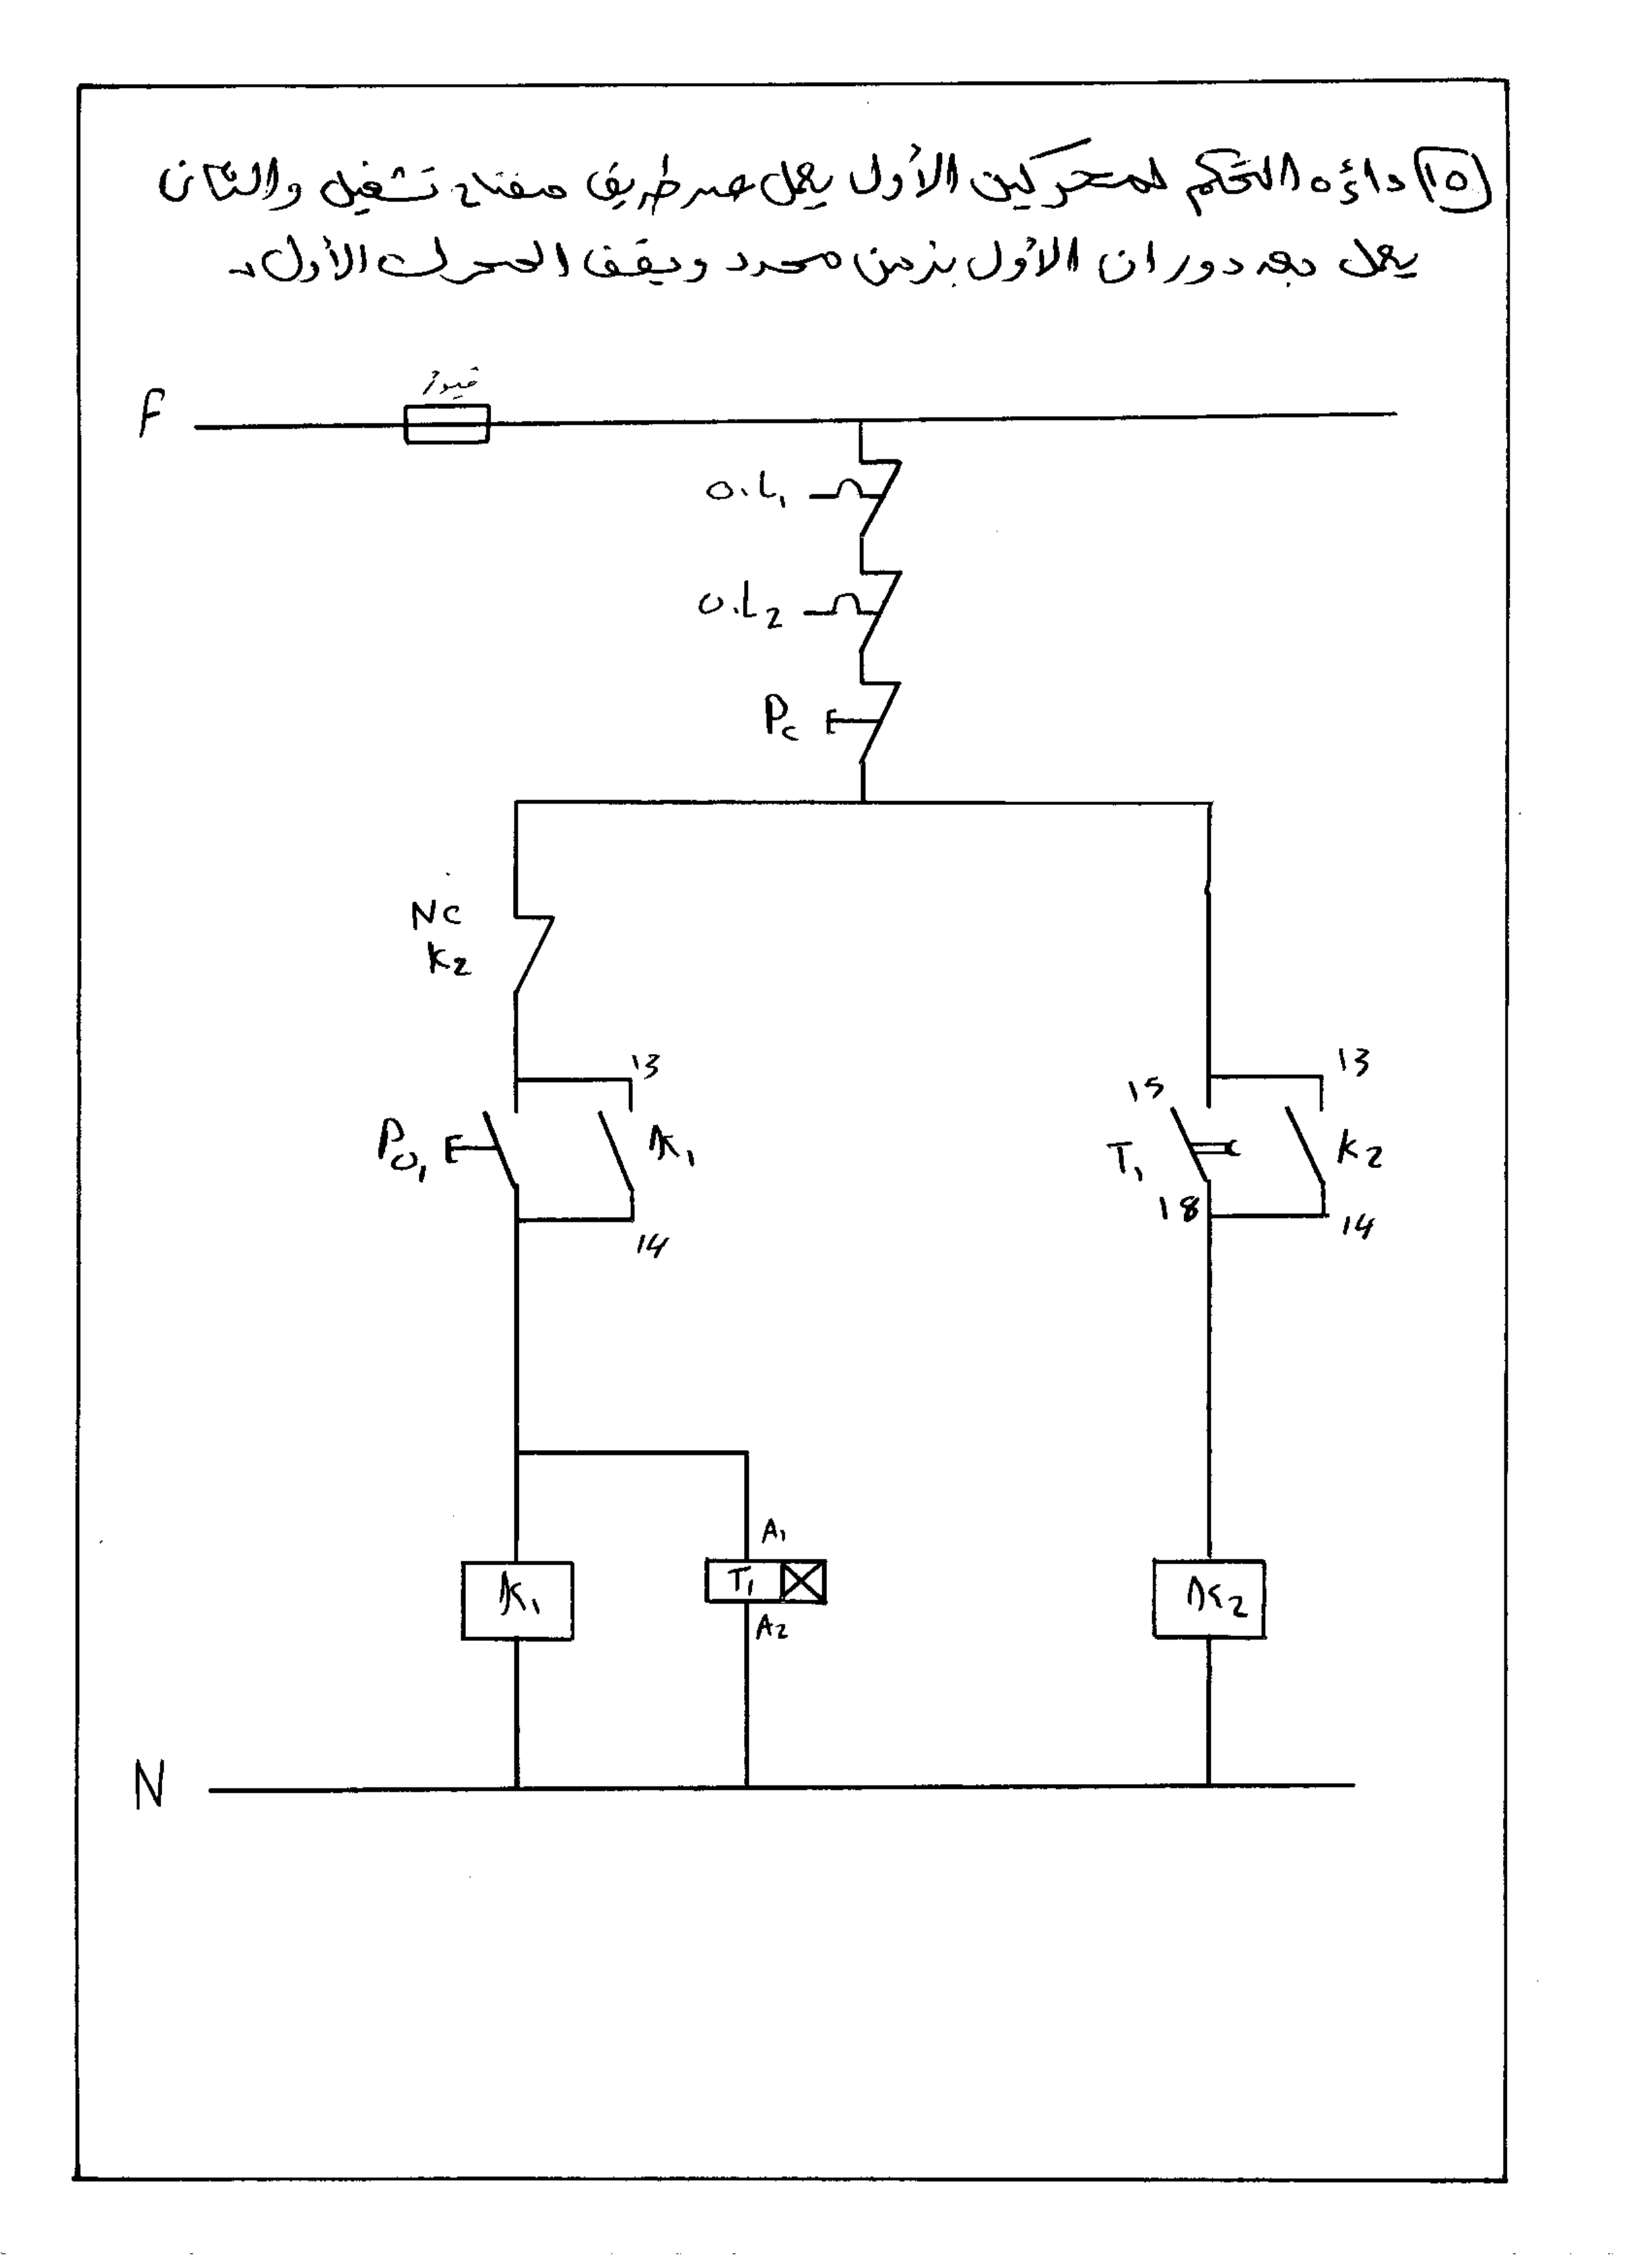 (١٥) دائره التحكم لمتحركين الأول يعمل عن طريق مفتاح تشغيل والثانى
يعمل بعد دوران الأول بزمن محدد ويقف المحرك الأول.
فيوز
F
O.L1
O.L2
Pc
NC
K2
13
Po1
K1
14
13
15
T1
K2
18
14
A1
K1
T1
K2
A2
N